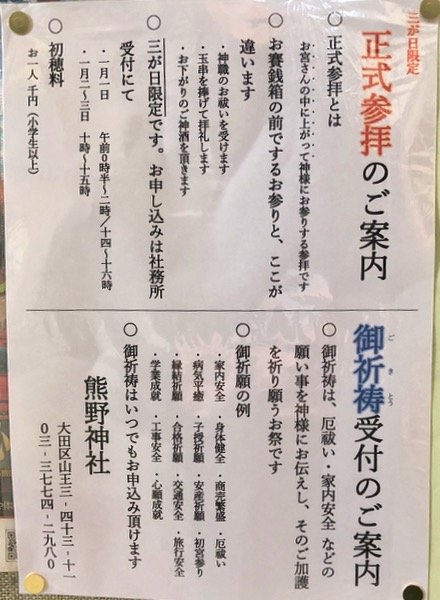 三が日限定
正式参拝のご案内
○ 正式参拝とは
お宮さんの中に上がって神様にお参りする参拝です
○ お賽銭箱の前でするお参りと、ここが
違います
・神職のお祓いを受けます
・玉串を捧げて拝礼します
・お下がりのご神酒を頂きます
○ 三が日限定です。お申し込みは社務所
受付にて
・一月一日 午前0時半〜二時/十四〜十六時
・一月二〜三日 十時〜十五時
○ 初穂料
お一人 千円(小学生以上)
御祈祷受付のご案内
ご き とう
○ 御祈祷は、厄祓い・家内安全 などの
願い事を神様にお伝えし、そのご加護
を祈り願うお祭です
○ 御祈願の例
・家内安全 ・身体健全 ・商売繁盛 ・厄祓い
・病気平癒 ・子授祈願 ・安産祈願 ・初宮参り
・縁結祈願 ・合格祈願 ・交通安全 ・旅行安全
・学業成就 ・工事安全 ・心願成就
○ 御祈祷はいつでもお申込み頂けます
熊野神社
大田区山王三-四十三-十一
0三-三七七四-二九八0